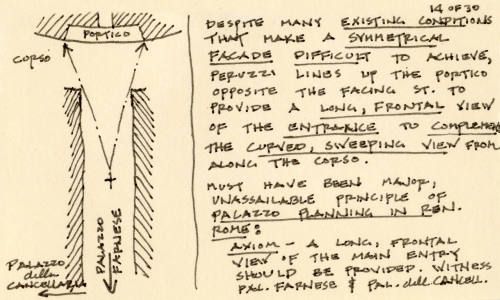 14 OF 30
PORTICO
CORSO
PALAZZO
FARNESE
PALAZZO
della
CANCELLARIA
DESPITE MANY EXISTING CONDITIONS
THAT MAKE A SYMMETRICAL
FACADE DIFFICULT TO ACHIEVE,
PERUZZI LINES UP THE PORTICO
OPPOSITE THE FACING ST. TO
PROVIDE A LONG, FRONTAL VIEW
OF THE ENTRANCE TO COMPLEMEN
THE CURVED, SWEEPING VIEW FROM
ALONG THE CORSO.
MUST HAVE BEEN MAJOR,
UNASSAILABLE PRINCIPLE OF
PALAZZO PLANNING IN REN.
ROME:
AXIOM - A LONG, FRONTAL
VIEW OF THE MAIN ENTRY
SHOULD BE PROVIDED. WITNESS
PAL. FARNESE & PAL. dell. CANCELL.